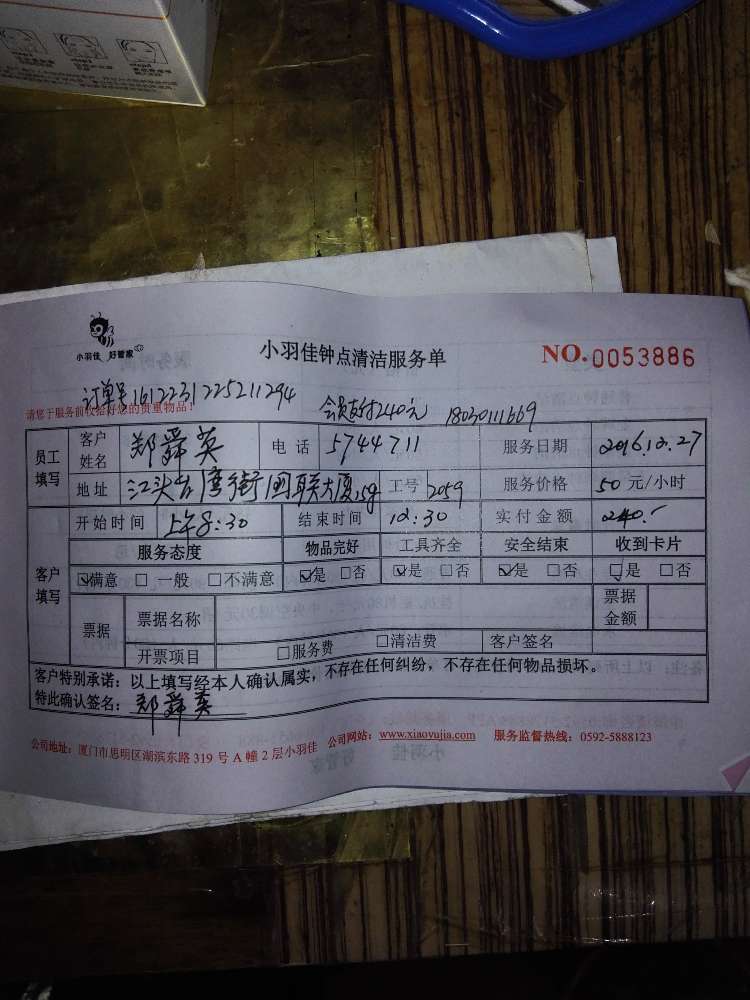 小羽佳 好管家
小羽佳钟点清洁服务单
NO.0053886
订单号1612231225211294
请您于服务前收拾好您的贵重物品!
会员支付240元 18030111669
员工填写 客户姓名 郑舜英 电话 5744711 服务日期 2016.12.27
地址 江头台湾街国联大厦15g 工号 2059 服务价格 50 元/小时
客户填写 开始时间 上午8:30 结束时间 12:30 实付金额 240.-
服务态度 物品完好 工具齐全 安全结束 收到卡片
☑满意 □一般 □不满意 ☑是 □否 ☑是 □否 ☑是 □否 □是 □否
票据 票据名称 票据金额
开票项目 □服务费 □清洁费 客户签名
客户特别承诺:以上填写经本人确认属实,不存在任何纠纷,不存在任何物品损坏。
特此确认签名:郑舜英
公司地址:厦门市思明区湖滨东路 319 号 A 幢 2 层小羽佳 公司网站:www.xiaoyujia.com 服务监督热线:0592-5888123